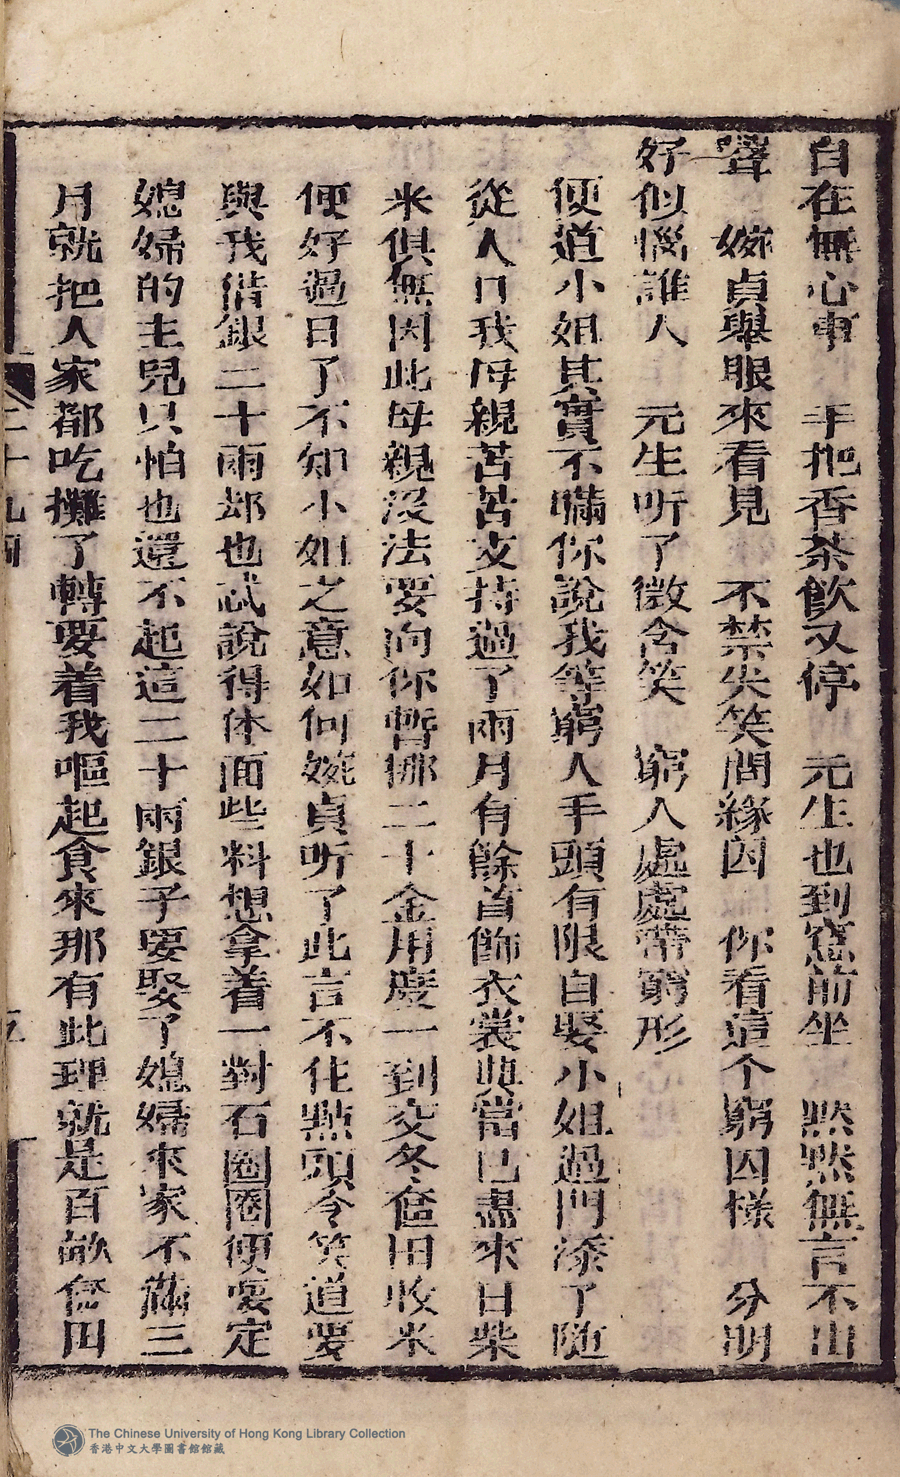 自在無心事　手把香茶飲又停　元生也到窓前坐　黙黙無言不出
聲　婉貞舉眼來看見　不禁失笑問緣因　你看這个窮囚様　分明
好似惱誰人　元生听了微含笑　窮人處處帶窮形
便道小姐其實不瞞你說我等窮人手頭有限自娶小姐過門添了随
從人口我母親苦苦支持過了兩月有餘首飾衣裳典當已盡來日柴
米俱無因此母親没法要向你暫挪二十金用度一到交冬奩田收米
便好過日了不知小姐之意如何婉貞听了此言不住點頭令笑道要
與我借銀二十兩却也忒說得体面些料想拿着一對石圈圈便要定
媳婦的主兒只怕也還不起這二十兩銀子要娶了媳婦來家不滿三
月就把人家都吃攤了轉要着我嘔起食來那有此理就是百畝奩田
二十九回
五
The Chinese University of Hong Kong Library Collection
香港中文大學圖書館館藏